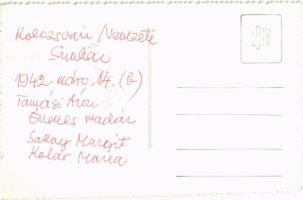 Kolozsvári Nemzeti
Színház
1942. márc. 14. (B)
Tamási Áron
Énekes madár
Szilágyi Margit
Kolár Mária